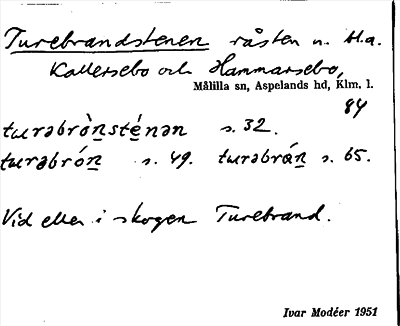 Turebrandstenen råsten n. bl.a.
Kallersebo och Hammarsebo,
Målilla sn, Aspelands hd, Klm. l.
84
turəbròn̲sté̲nən s. 32.
turəbrón̲ s. 49. turəbrán̲ s. 65.
Vid eller i skogen Turebrand.
Ivar Modéer 1951